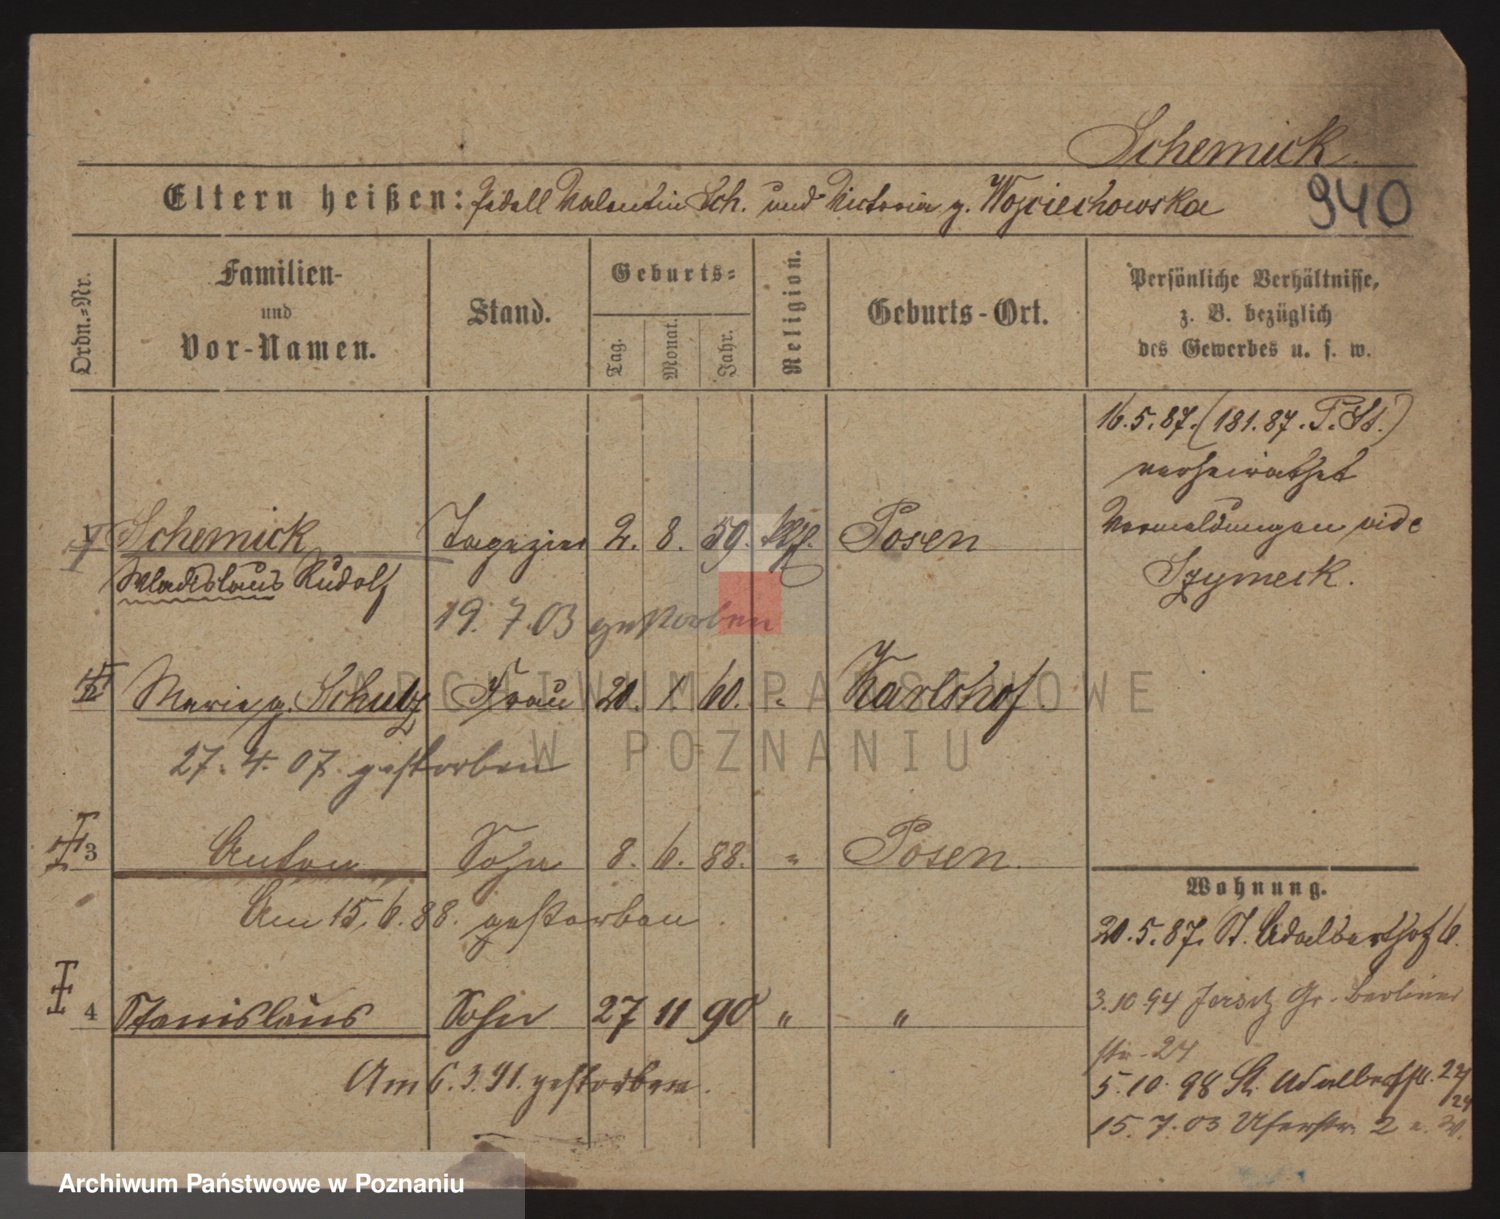 Schemick
Eltern heißen: Valentin Sch. und Victoria g. Wojciechowska
940
Ordn.-Nr.
Familien-
und
Vor-Namen.
Stand.
Geburts-
Tag.
Monat.
Jahr.
Religion.
Geburts-Ort.
Persönliche Verhältnisse,
z. B. bezüglich
des Gewerbes u. s. w.
16.5.87. (181.87. P. St.)
verheirathet
Vermeldungen vide
Szymeck.
1 Schemick Tapezier 2. 8. 59. kth. Posen
Wladislaus Rudolf
19. 7. 03 gestorben
2 Marie g. Schulz Frau 20. X 60. " Karlshof
27. 4. 07. gestorben
3 Anton Sohn 8. 6. 88. " Posen.
Am 15. 6. 88. gestorben.
4 Stanislaus Sohn 27 11 90 " "
Am 6. 3. 91. gestorben.
Wohnung.
20.5.87. St. Adalberthof 6.
3.10 94 Jersitz Gr. Berliner
str. 24
5.10.98 St. Adalbertstr.
15. 7. 03 Uferstr. 2
ARCHIWUM PAŃSTWOWE
W POZNANIU
Archiwum Państwowe w Poznaniu